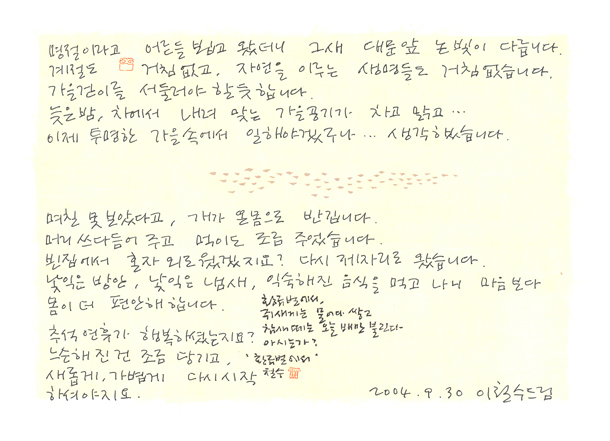 명절이라고 어른들 뵙고 왔더니 그새 대문앞 논빛이 다릅니다.
계절도 거침없고, 자연을 이루는 생명들도 거침없습니다.
가을걷이를 서둘러야 할 듯합니다.
늦은밤, 차에서 내려 맞는 가을공기가 차고 맑고…
이제 투명한 가을속에서 일해야겠구나… 생각했습니다.
며칠 못 보았다고, 개가 온몸으로 반깁니다.
머리 쓰다듬어 주고 먹이도 조금 주었습니다.
빈집에서 혼자 외로웠겠지요? 다시 제자리로 왔습니다.
낯익은 방안, 낯익은 냄새, 익숙해진 음식을 먹고 나니 마음보다
몸이 더 편안해 합니다.
추석 연휴가 행복하셨는지요?
느슨해진 건 조금 당기고,
새롭게, 가볍게 다시 시작
하셔야지요.
황류벌에서,
참새떼는 오늘 배만 불린다
아시는가?
철수
2004. 9. 30 이철수드림